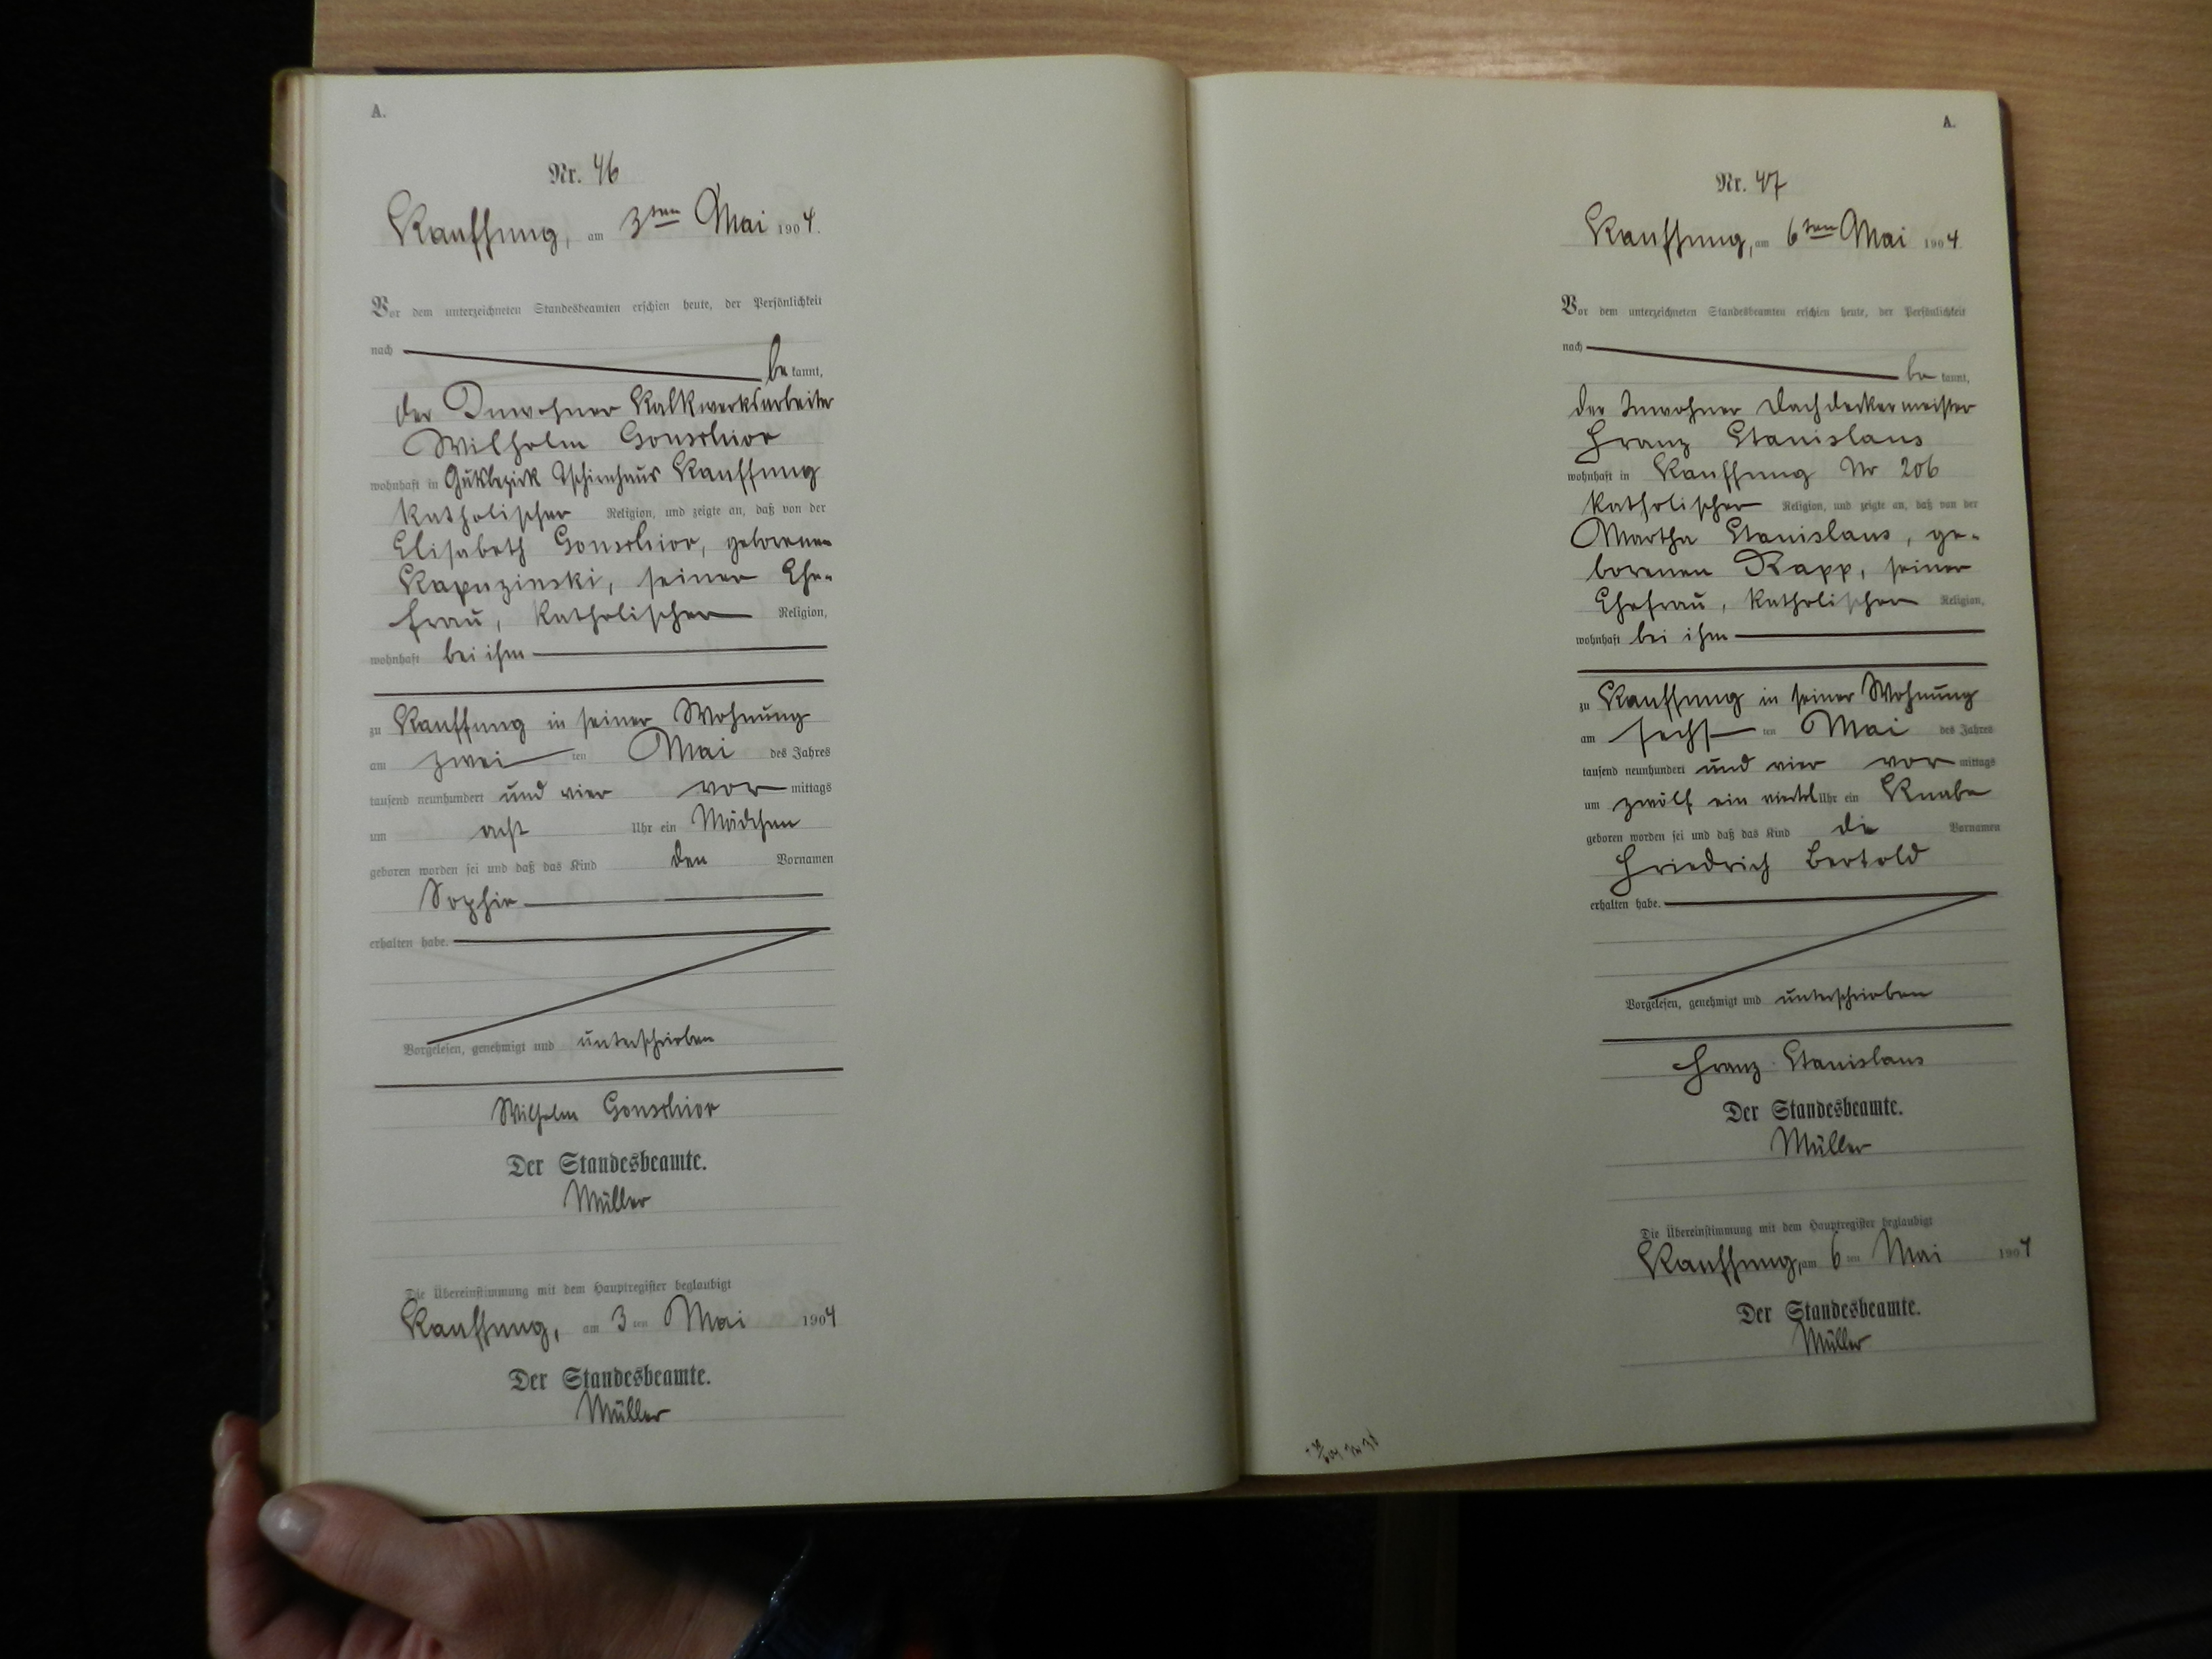 A.
Nr. 46
Kauffung, am 3ten Mai 1904.
Vor dem unterzeichneten Standesbeamten erschien heute, der Persönlichkeit
nach
be kannt,
der Inwohner Kalkwerksarbeiter
Wilhelm Gonschior
wohnhaft in Gutsbezirk Tschirnhaus Kauffung
katholischer Religion, und zeigte an, daß von der
Elisabeth Gonschior, geborenen
Kapuzinski, seiner Ehe-
frau, katholischer Religion,
wohnhaft bei ihm
zu Kauffung in seiner Wohnung
am zwei ten Mai des Jahres
tausend neunhundert und vier vor mittags
um acht Uhr ein Mädchen
geboren worden sei und daß das Kind den Vornamen
Sophie
erhalten habe.
Vorgelesen, genehmigt und unterschrieben
Wilhelm Gonschior
Der Standesbeamte.
Müller
Die Übereinstimmung mit dem Hauptregister beglaubigt
Kauffung, am 3 ten Mai 1904
Der Standesbeamte.
Müller
A.
Nr. 47
Kauffung, am 6ten Mai 1904.
Vor dem unterzeichneten Standesbeamten erschien heute, der Persönlichkeit
nach
be kannt,
der Inwohner Dachdeckermeister
Franz Stanislaus
wohnhaft in Kauffung Nr 206
katholischer Religion, und zeigte an, daß von der
Martha Stanislaus, ge-
borenen Rapp, seiner
Ehefrau, katholischer Religion,
wohnhaft bei ihm
zu Kauffung in seiner Wohnung
am sechs ten Mai des Jahres
tausend neunhundert und vier vor mittags
um zwölf ein viertel Uhr ein Knabe
geboren worden sei und daß das Kind die Vornamen
Friedrich Bertold
erhalten habe.
Vorgelesen, genehmigt und unterschrieben
Franz Stanislaus
Der Standesbeamte.
Müller
Die Übereinstimmung mit dem Hauptregister beglaubigt
Kauffung, am 6 ten Mai 1904
Der Standesbeamte.
Müller